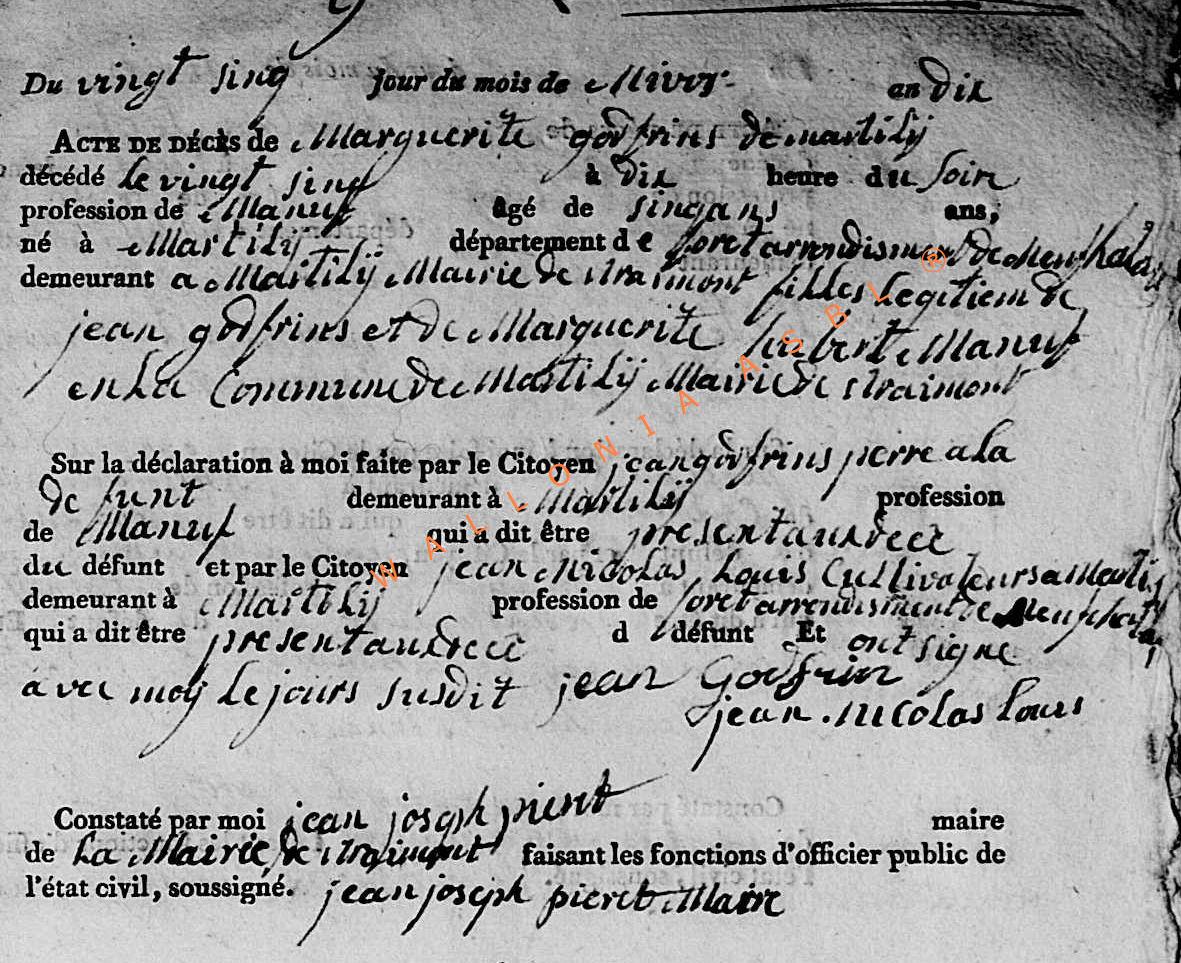 Du vingt sinq jour du mois de Nivos an dix
ACTE DE DÉCÈS de Marguerite godfrins de martilÿ
décédé le vingt sinq à dix heure du soir
profession de Manuf âgé de sinq ans ans,
né à Martilÿ département de foret arrondisment de Neufchatau
demeurant a Martilÿ Mairie de straimont filles Legitiem de
jean godfrins et de Marguerite hubert Manuf
en La Commune de Martilÿ Mairie de straimont
Sur la déclaration à moi faite par le Citoyen jean godfrins pierre a la
de funt demeurant à Martilÿ profession
de Manuf qui a dit être present audece
du défunt et par le Citoyen jean Nicolas Louis Cultivateurs a Martilÿ
demeurant à Martilÿ profession de foret arrondisment de Neufchatau
qui a dit être present audece d défunt Et ont signe
avec moy Le jours susdit jean Godfrin
jean nicolas Louis
Constaté par moi jean joseph pieret maire
de La Mairie de straimont faisant les fonctions d'officier public de
l'état civil, soussigné. jean joseph pieret Maire
WALLONIA ASBL ®